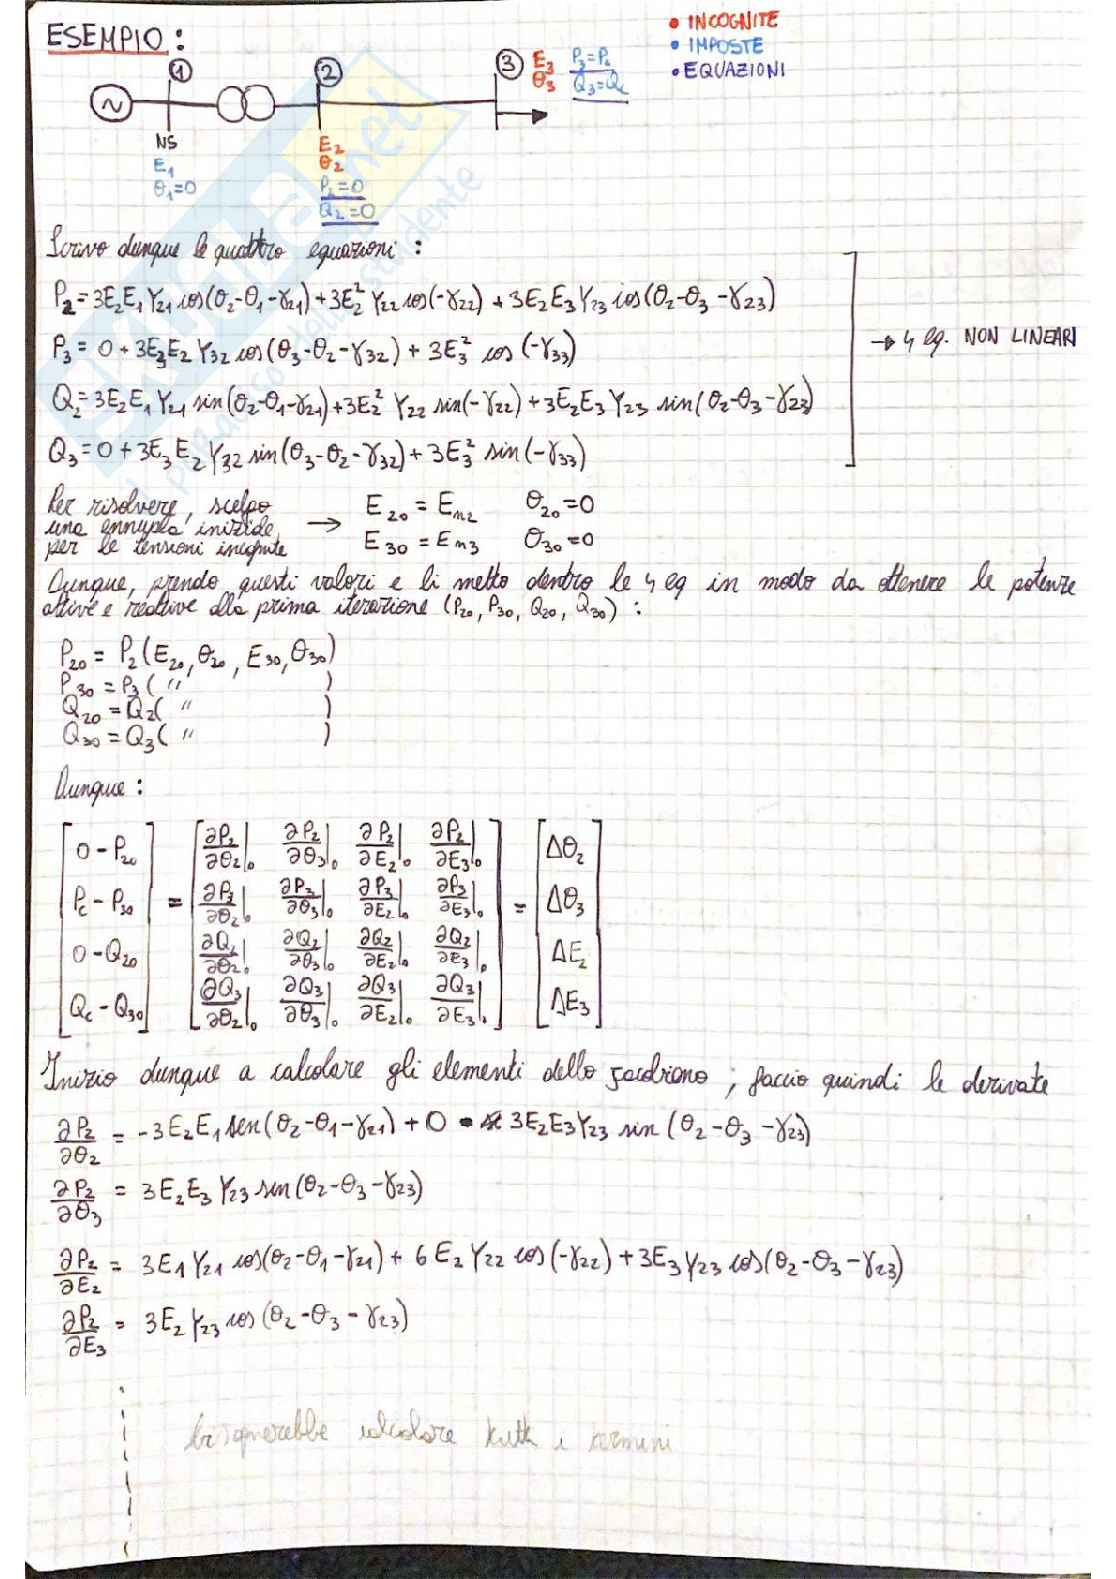 ESEMPIO:
• INCOGNITE
• IMPOSTE
• EQUAZIONI
1 2 3
~
NS
E₁
θ₁=0
E₂
θ₂
P₂=0
Q₂=0
E₃ P₃=Pc
θ₃ Q₃=Qc
Scrivo dunque le quattro equazioni:
P₂=3E₂E₁Y₂₁cos(θ₂-θ₁-γ₂₁)+3E₂²Y₂₂cos(-γ₂₂)+3E₂E₃Y₂₃cos(θ₂-θ₃-γ₂₃)
P₃=0+3E₃E₂Y₃₂cos(θ₃-θ₂-γ₃₂)+3E₃²cos(-γ₃₃)
→ 4 eq. NON LINEARI
Q₂=3E₂E₁Y₂₁sin(θ₂-θ₁-γ₂₁)+3E₂²Y₂₂sin(-γ₂₂)+3E₂E₃Y₂₃sin(θ₂-θ₃-γ₂₃)
Q₃=0+3E₃E₂Y₃₂sin(θ₃-θ₂-γ₃₂)+3E₃²sin(-γ₃₃)
Per risolvere, scelgo
una ennupla iniziale
per le tensioni incognite
→ E₂₀=Eₙ₂ θ₂₀=0
E₃₀=Eₙ₃ θ₃₀=0
Dunque, prendo questi valori e li metto dentro le 4 eq in modo da ottenere le potenze
attive e reattive alla prima iterazione (P₂₀, P₃₀, Q₂₀, Q₃₀):
P₂₀=P₂(E₂₀, θ₂₀, E₃₀, θ₃₀)
P₃₀=P₃( " )
Q₂₀=Q₂( " )
Q₃₀=Q₃( " )
Dunque:
[0-P₂₀] [∂P₂/∂θ₂|₀ ∂P₂/∂θ₃|₀ ∂P₂/∂E₂|₀ ∂P₂/∂E₃|₀] [Δθ₂]
[Pc-P₃₀] = [∂P₃/∂θ₂|₀ ∂P₃/∂θ₃|₀ ∂P₃/∂E₂|₀ ∂P₃/∂E₃|₀] = [Δθ₃]
[0-Q₂₀] [∂Q₂/∂θ₂|₀ ∂Q₂/∂θ₃|₀ ∂Q₂/∂E₂|₀ ∂Q₂/∂E₃|₀] [ΔE₂]
[Qc-Q₃₀] [∂Q₃/∂θ₂|₀ ∂Q₃/∂θ₃|₀ ∂Q₃/∂E₂|₀ ∂Q₃/∂E₃|₀] [ΔE₃]
Inizio dunque a calcolare gli elementi dello jacobiano; faccio quindi le derivate
∂P₂/∂θ₂ = -3E₂E₁sen(θ₂-θ₁-γ₂₁)+0-3E₂E₃Y₂₃sin(θ₂-θ₃-γ₂₃)
∂P₂/∂θ₃ = 3E₂E₃Y₂₃sin(θ₂-θ₃-γ₂₃)
∂P₂/∂E₂ = 3E₁Y₂₁cos(θ₂-θ₁-γ₂₁)+6E₂Y₂₂cos(-γ₂₂)+3E₃Y₂₃cos(θ₂-θ₃-γ₂₃)
∂P₂/∂E₃ = 3E₂Y₂₃cos(θ₂-θ₃-γ₂₃)
bisognerebbe calcolare tutti i termini